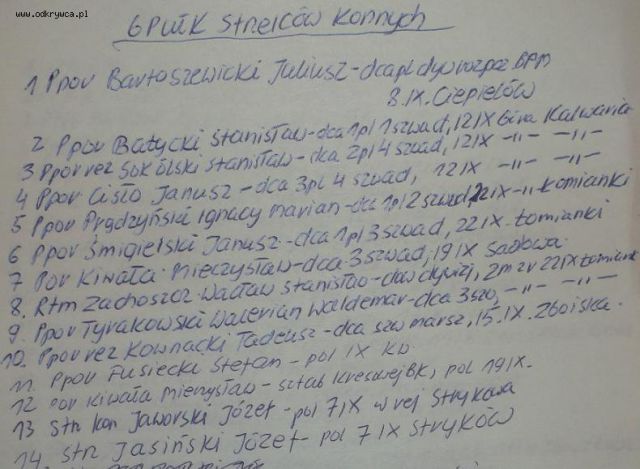 www.odkrywca.pl
6 PUŁK STRELCÓW KONNYCH
1 Ppor Bartoszewicki Juliusz - dca pl dyw rozpoz. 6PM
8.IX. Ciepielów
2 Ppor Batycki Stanisław - dca 1pl 1szwad, 12 IX Góra Kalwaria
3 Ppor rez Sokólski Stanisław - dca 2pl 4 szwad, 12 IX -"- -"-
4 Ppor Cisło Janusz - dca 3pl 4 szwad, 12 IX -"- -"-
5 Ppor Prądzyński Ignacy Marian - dca 1pl 2 szwad, 22 IX -"- Łomianki
6 Ppor Śmigielski Janusz - dca 1pl 3 szwad, 22 IX. Łomianki
7 Por Kiwała Mieczysław - dca 3 szwad, 19 IX Sadowa
8. Rtm Zachoszcz Wacław Stanisław - dca dywizj, zm zr 22 IX Łomianki
9. Ppor Tyrakowski Walerian Waldemar - dca 3szw, -"- -"- -"-
10. Ppor rez Kownacki Tadeusz - dca szw marsz, 15.IX. Zboiska.
11. Ppor Fusiecki Stefan - pol IX KB
12 Por Kiwała Mieczysław - sztab Kresowej BK, pol 19 IX.
13 Str kon Jaworski Józef - pol 7 IX w rej Strykowa
14 Str Jasiński Józef - pol 7 IX Stryków